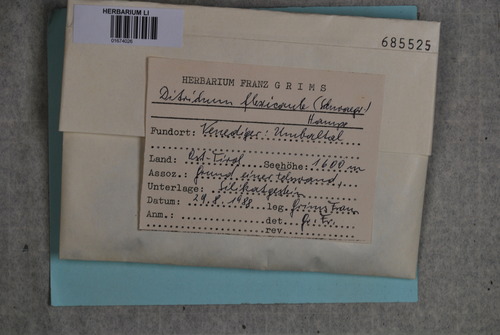 HERBARIUM LI
01674026
685525
HERBARIUM FRANZ GRIMS
Ditrichum flexicaule (Schwaegr.)
Hampe
Fundort: Venediger: Umbaltal
Land: Ost-Tirol Seehöhe: 1600 m
Assoz. Grund einer Felswand,
Unterlage: Silikatgestein
Datum: 29.8.1988 leg. Grims Franz
Anm.: det. Gr. Fr.
rev.